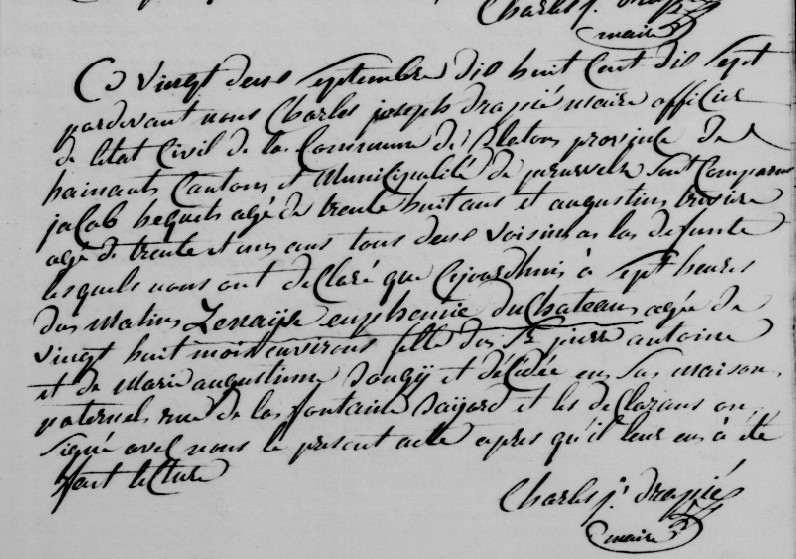 Charles j. Drapié
maire
Ce vingt deus Septembre dis huit Cent dis Sept
pardevant nous Charles joseph Drapié maire officier
de letat Civil de la Commune de Blaton province de
hainant Canton et Municipalité de peruwelz sont Comparus
jacob hequet agé de trente huit ans et augustin
agé de trente et un ans tous deus voisin a la defunte
lesquels nous ont declaré que Cejourdhuis à Sept heures
du matin Zenaïse euphemie duchateau agée de
vingt huit mois environs fille du Sr. pierre antoine
et de Marie augustinne et décédée en sa maison
paternel rue de la fontaine et les declarans on
signé avec nous le present acte apres qu'il leur en à été
fait lecture
Charles j. Drapié
maire